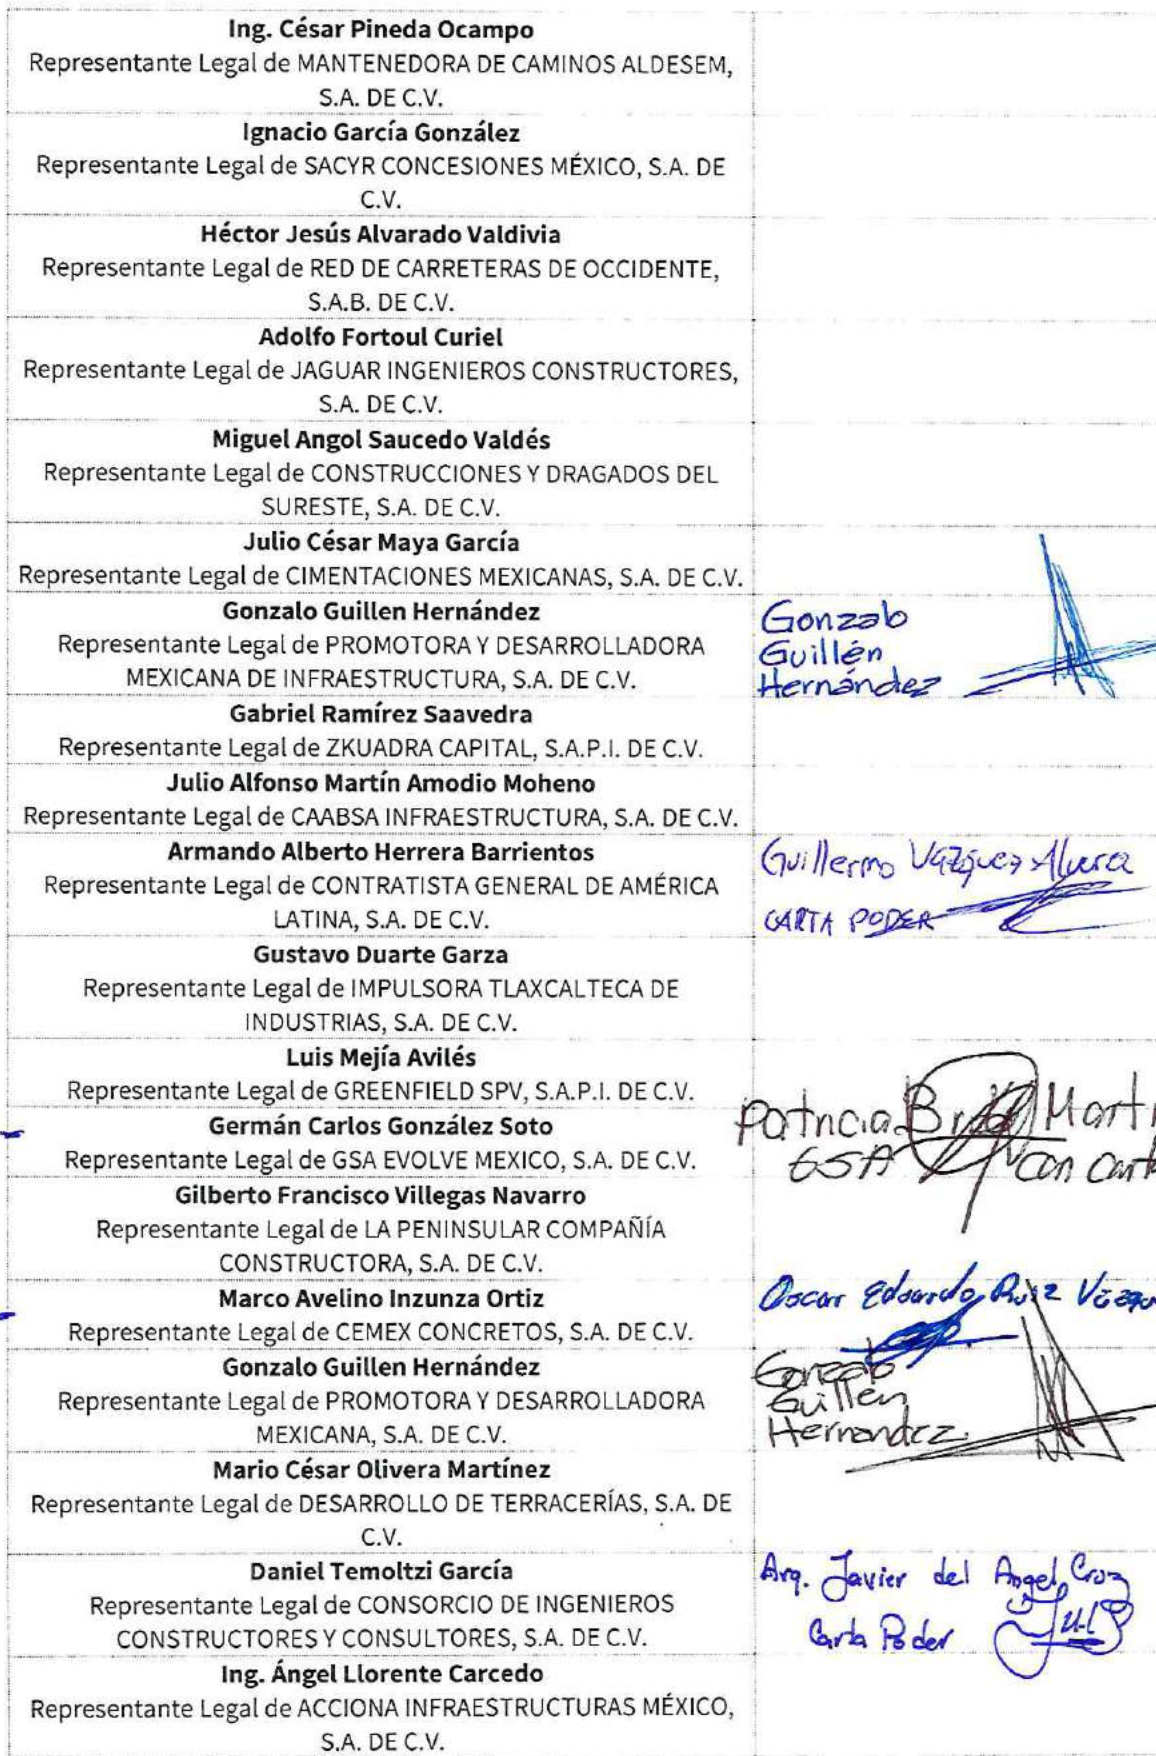 Ing. César Pineda Ocampo
Representante Legal de MANTENEDORA DE CAMINOS ALDESEM,
S.A. DE C.V.
Ignacio García González
Representante Legal de SACYR CONCESIONES MÉXICO, S.A. DE
C.V.
Héctor Jesús Alvarado Valdivia
Representante Legal de RED DE CARRETERAS DE OCCIDENTE,
S.A.B. DE C.V.
Adolfo Fortoul Curiel
Representante Legal de JAGUAR INGENIEROS CONSTRUCTORES,
S.A. DE C.V.
Miguel Angol Saucedo Valdés
Representante Legal de CONSTRUCCIONES Y DRAGADOS DEL
SURESTE, S.A. DE C.V.
Julio César Maya García
Representante Legal de CIMENTACIONES MEXICANAS, S.A. DE C.V.
Gonzalo Guillen Hernández
Representante Legal de PROMOTORA Y DESARROLLADORA
MEXICANA DE INFRAESTRUCTURA, S.A. DE C.V.
Gonzalo
Guillén
Hernández
Gabriel Ramírez Saavedra
Representante Legal de ZKUADRA CAPITAL, S.A.P.I. DE C.V.
Julio Alfonso Martín Amodio Moheno
Representante Legal de CAABSA INFRAESTRUCTURA, S.A. DE C.V.
Armando Alberto Herrera Barrientos
Representante Legal de CONTRATISTA GENERAL DE AMÉRICA
LATINA, S.A. DE C.V.
Guillermo Vázquez
CARTA PODER
Gustavo Duarte Garza
Representante Legal de IMPULSORA TLAXCALTECA DE
INDUSTRIAS, S.A. DE C.V.
Luis Mejía Avilés
Representante Legal de GREENFIELD SPV, S.A.P.I. DE C.V.
Germán Carlos González Soto
Representante Legal de GSA EVOLVE MEXICO, S.A. DE C.V.
Patricia Marti
GSA con Carta
Gilberto Francisco Villegas Navarro
Representante Legal de LA PENINSULAR COMPAÑÍA
CONSTRUCTORA, S.A. DE C.V.
Marco Avelino Inzunza Ortiz
Representante Legal de CEMEX CONCRETOS, S.A. DE C.V.
Oscar Eduardo Ruiz
Gonzalo Guillen Hernández
Representante Legal de PROMOTORA Y DESARROLLADORA
MEXICANA, S.A. DE C.V.
Gonzalo
Guillen
Hernandez
Mario César Olivera Martínez
Representante Legal de DESARROLLO DE TERRACERÍAS, S.A. DE
C.V.
Daniel Temoltzi García
Representante Legal de CONSORCIO DE INGENIEROS
CONSTRUCTORES Y CONSULTORES, S.A. DE C.V.
Arq. Javier del Angel Cruz
Carta Poder
Ing. Ángel Llorente Carcedo
Representante Legal de ACCIONA INFRAESTRUCTURAS MÉXICO,
S.A. DE C.V.